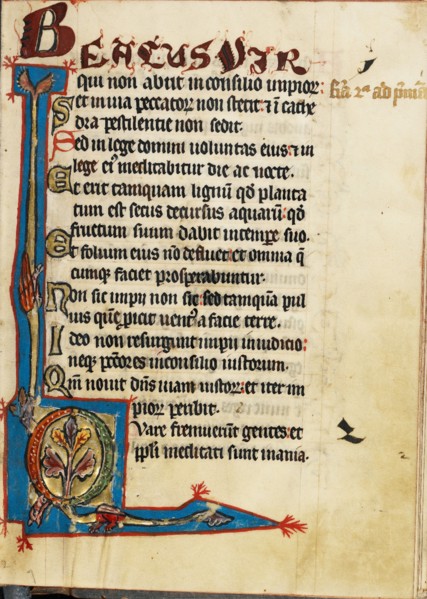 BEATUS VIR
qui non abiit in consilio impior:
Set in uia peccator non stetit: ⁊ i cathe
dra pestilentie non sedit.
Sed in lege domini uoluntas eius: ⁊ in
lege ei᷒ meditabitur die ac nocte.
Et erit tamquam lignū qd̄ planta
tum est secus decursus aquarū: qd̄
fructum suum dabit in tempre suo.
Et folium eius nō defluet: et omnia q̄
cumq; faciet prosperabuntur.
Non sic impii non sic: sed tamquā pul
uis quē ꝓicit uent᷒ a facie terre.
Ideo non resurgunt impii in iudicio:
neq; pctōres in consilio iustorum.
Qm̄ nouit dn̄s uiam iustor: et iter im
pior peribit.
Quare fremuerūt gentes: et
ppli meditati sunt inania.
fīa 2ᵃ ad pimā